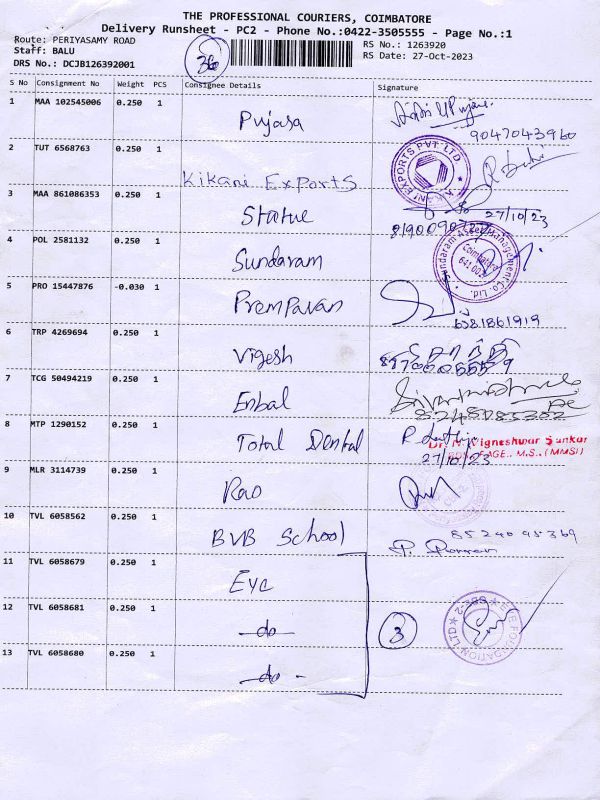 THE PROFESSIONAL COURIERS, COIMBATORE
Delivery Runsheet - PC2 - Phone No.:0422-3505555 - Page No.:1
Route: PERIYASAMY ROAD
RS No.: 1263920
Staff: BALU
RS Date: 27-Oct-2023
DRS No.: DCJB126392001
S No Consignment No Weight PCS Consignee Details Signature
1 MAA 102545006 0.250 1 Pujasa
9047043960
2 TUT 6568763 0.250 1 Kikani Exports
KIKANI EXPORTS PVT. LTD.
3 MAA 861086353 0.250 1 Statue
27/10/23
4 POL 2581132 0.250 1 Sundaram
Sundaram Asset Management Co. Ltd.
Coimbatore
5 PRO 15447876 -0.030 1 Prempavan
6381861919
6 TRP 4269694 0.250 1 Vigesh
7 TCG 50494219 0.250 1 Enbal
8248085302
8 MTP 1290152 0.250 1 Total Dental
Vigneshwar Sunkar
27/10/23
FAGE., M.S., (MMSI)
9 MLR 3114739 0.250 1 Rao
10 TVL 6058562 0.250 1 BVB School
8524095369
11 TVL 6058679 0.250 1 Eye
12 TVL 6058681 0.250 1 -do-
3
FOUNDATION LTD
13 TVL 6058680 0.250 1 -do-